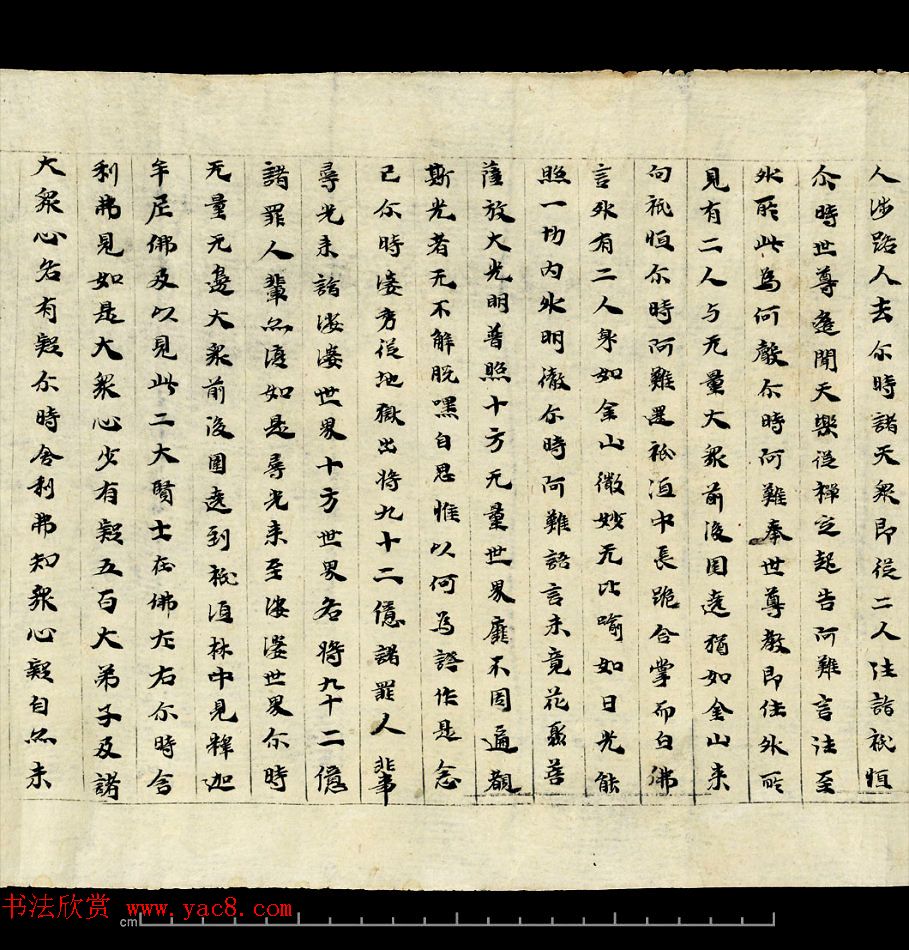 人涉路人去尒時諸天衆即從二人往詣祇恒
尒時世尊遥聞天樂從禅定起告阿難言汝至
外所此為何聲尒時阿難奉世尊教即往外所
見有二人与无量大衆前後圍遶猶如金山来
向祇恒尒時阿難還祇洹中長跪合掌而白佛
言外有二人身如金山微妙无比喻如日光能
照一切内外明徹尒時阿難語言未竟花聚菩
薩放大光明普照十方无量世界靡不周遍覩
斯光者无不解脱嘿自思惟以何為證作是念
已尒時婆芳從地獄出将九十二億諸罪人輩
尋光来詣娑婆世界十方世界各将九十二億
諸罪人輩亦復如是尋光来至娑婆世界尒時
无量无邊大衆前後圍遶到祇洹林中見釋迦
牟尼佛及以見此二大賢士在佛左右尒時舍
利弗見如是大衆心少有疑五百大弟子及諸
大衆心各有疑尒時舍利弗知衆心疑自亦未
书法欣赏 www.yac8.com
cm